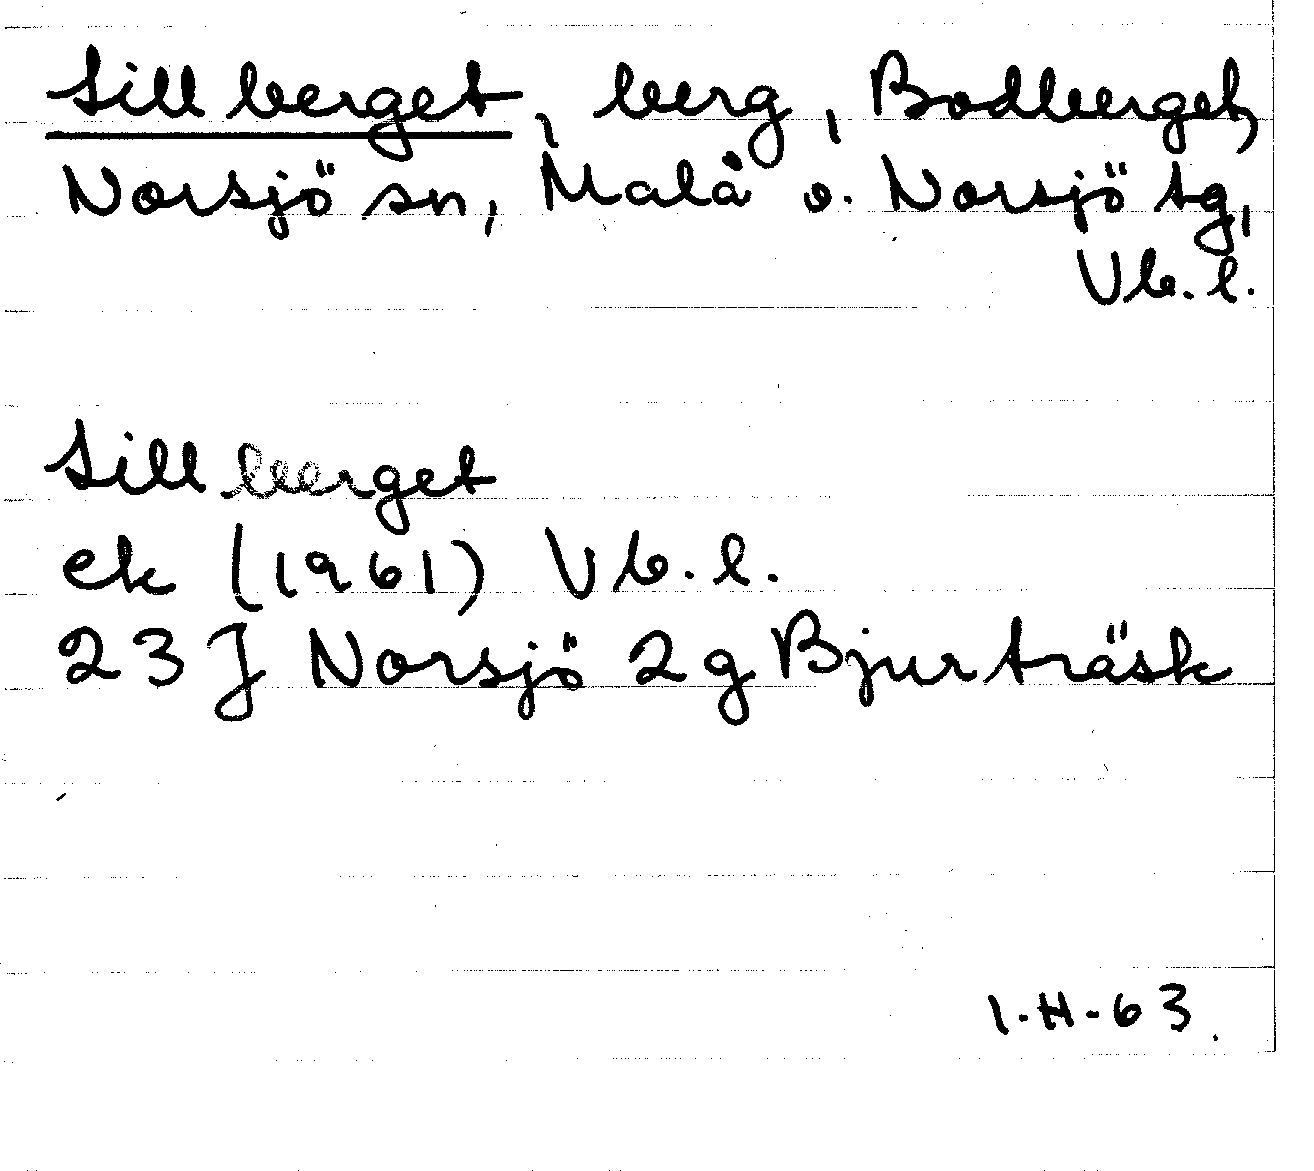 Sillberget, berg, Bodberget,
Norsjö sn, Malå o. Norsjö tg,
Vb. l.
Sillberget
ek (1961) Vb. l.
23 J Norsjö 2 g Bjurträsk
I-H-63